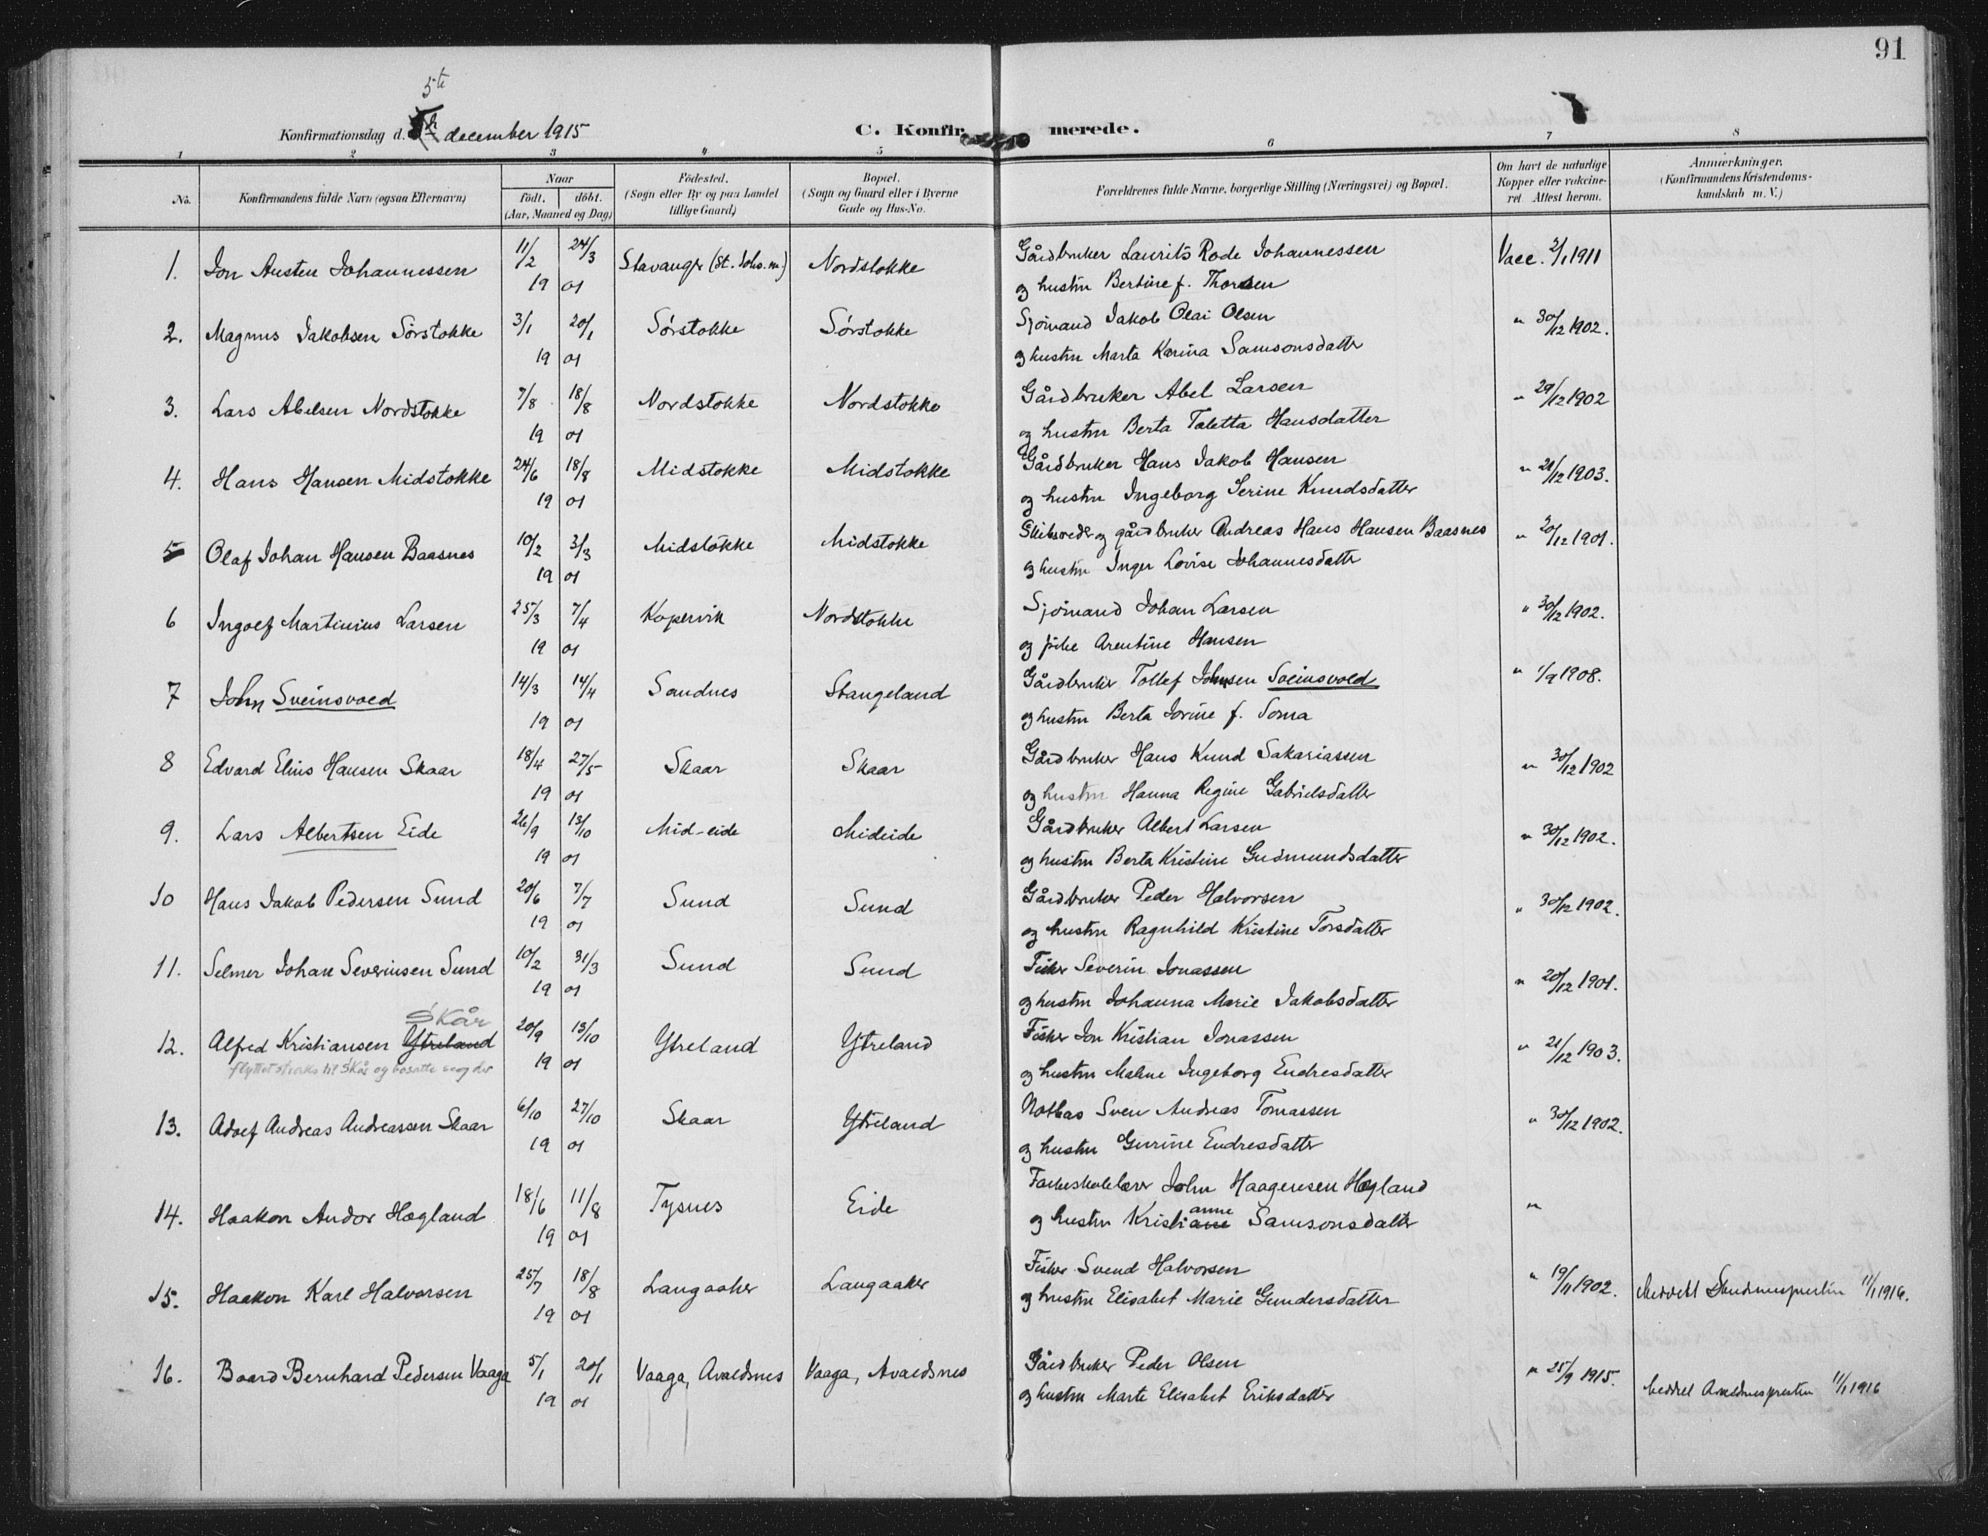 91
5te
Konfirmationsdag d. december 1915
C. Konfirmerede.
1 2 3 4 5 6 7 8
No.
Konfirmandens fulde Navn (ogsaa Efternavn)
Naar
født. døbt.
(Aar, Maaned og Dag)
Födested.
(Sogn eller By og paa Landet
tillige Gaard)
Bopæl.
(Sogn og Gaard eller i Byerne
Gade og Hus-No.
Forældrenes fulde Navne, borgerlige Stilling (Næringsvei) og Bopæl.
Om havt de naturlige
Kopper eller vakcine-
ret. Attest herom.
Anmærkninger.
(Konfirmandens Kristendoms-
kundskab m. V.)
1. Jon Austen Johannessen 11/2 24/3 Stavanger (St. Johs. m.) Nordstokke Gårdbruker Laurits Rode Johannessen Vacc. 2/1 1911
19 01 og hustru Bertine f. Thorsen
2. Magnus Jakobsen Sørstokke 3/1 20/1 Sørstokke Sørstokke Sjömand Jakob Olai Olsen " 30/12 1902.
19 01 og hustru Marta Karina Samsonsdatter
3. Lars Abelsen Nordstokke 7/8 18/8 Nordstokke Nordstokke Gårdbruker Abel Larsen " 29/12 1902
19 01 og hustru Berta Taletta Hansdatter
4. Hans Hansen Midstokke 24/6 18/8 Midstokke Midstokke Gårdbruker Hans Jakob Hansen " 21/12 1903.
19 01 og hustru Ingeborg Serine Knudsdatter
5 Olaf Johan Hansen Baasnes 10/2 3/3 Midstokke Midstokke Skibsreder og gårdbruker Andreas Hans Hansen Baasnes " 20/12 1901.
19 01 og hustru Inger Lovise Johannesdatter
6 Ingolf Martinius Larsen 25/3 7/4 Kopervik Nordstokke Sjömand Johan Larsen " 30/12 1902.
19 01 og pike Arentine Hansen
7 John Sveinsvold 14/3 14/4 Sandnes Stangeland Gårdbruker Tollef Johnsen Sveinsvold " 1/9 1908.
19 01 og hustru Berta Jorine f. Soma
8 Edvard Elius Hansen Skaar 18/4 27/5 Skaar Skaar Gårdbruker Hans Knud Sakariassen " 30/12 1902
19 01 og hustru Hanna Regine Gabrielsdatter
9. Lars Albertsen Eide 26/9 13/10 Mid-eide Mideide Gårdbruker Albert Larsen " 30/12 1902.
19 01 og hustru Berta Kristine Gudmundsdatter
10 Hans Jakob Pedersen Sund 20/6 7/7 Sund Sund Gårdbruker Peder Halvorsen " 30/12 1902.
19 01 og hustru Ragnhild Kristine Torsdatter
11. Selmer Johan Severinsen Sund 10/2 31/3 Sund Sund Fisker Severin Jonassen " 20/12 1901.
19 01 og hustru Johanna Marie Jakobsdatter
Skår
12. Alfred Kristiansen Ytreland 20/9 13/10 Ytreland Ytreland Fisker Jon Kristian Jonassen " 21/12 1903.
flyttet straks til Skår og bosatte seg der 19 01 og hustru Malene Ingeborg Endresdatter
13. Adolf Andreas Andreassen Skaar 6/10 27/10 Skaar Ytreland Notbas Sven Andreas Tomassen " 30/12 1902.
19 01 og hustru Gurine Endresdatter
14. Haakon Andor Hogland 18/6 11/8 Tysnes Eide Folkeskolelærer John Haagensen Hogland "
19 01 og hustru Kristiane anne Samsonsdatter
15. Haakon Karl Halvorsen 25/7 18/8 Langaaker Langaaker Fisker Svend Halvorsen " 19/11 1902. Meddelt Skudenespresten 11/1 1916.
19 01 og hustru Elisabet Marie Gundersdatter
16. Baard Bernhard Pedersen Vaaga 5/1 20/1 Vaaga, Avaldsnes Vaaga, Avaldsnes Gårdbruker Peder Olsen " 25/9 1915. Meddelt Avaldsnespresten 11/1 1916
19 01 og hustru Marte Elisabet Eriksdatter